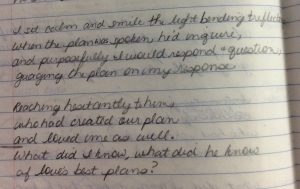 I sat calm and smile the light bending & reflecting
When the plan was spoken he'd inquire,
and purposefully I would respond a question,
guaging the plan on my response.
Reaching hesitantly to him,
who had created our plan
and loved me as well.
What did I know, what did he know
of love's best plans?